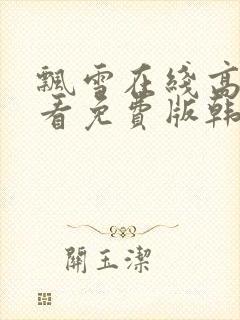 飄雪在綫高
看免費版韩
關玉潔